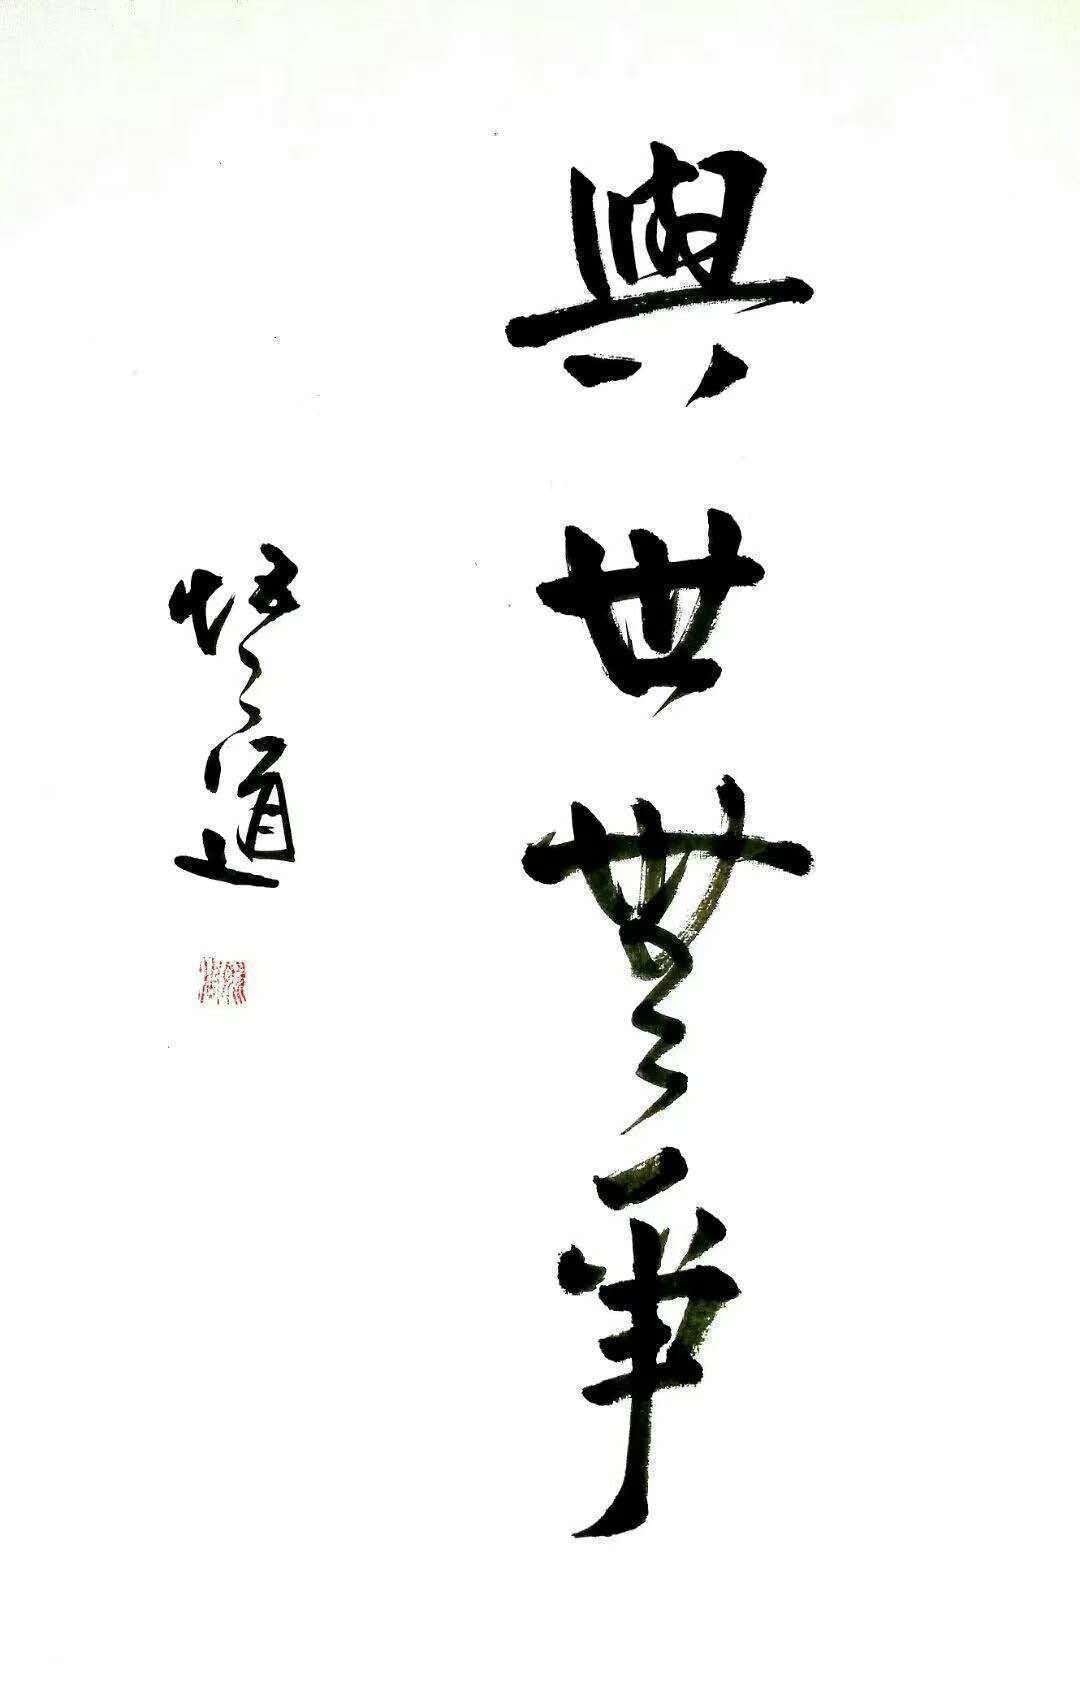 與世無爭
悟道